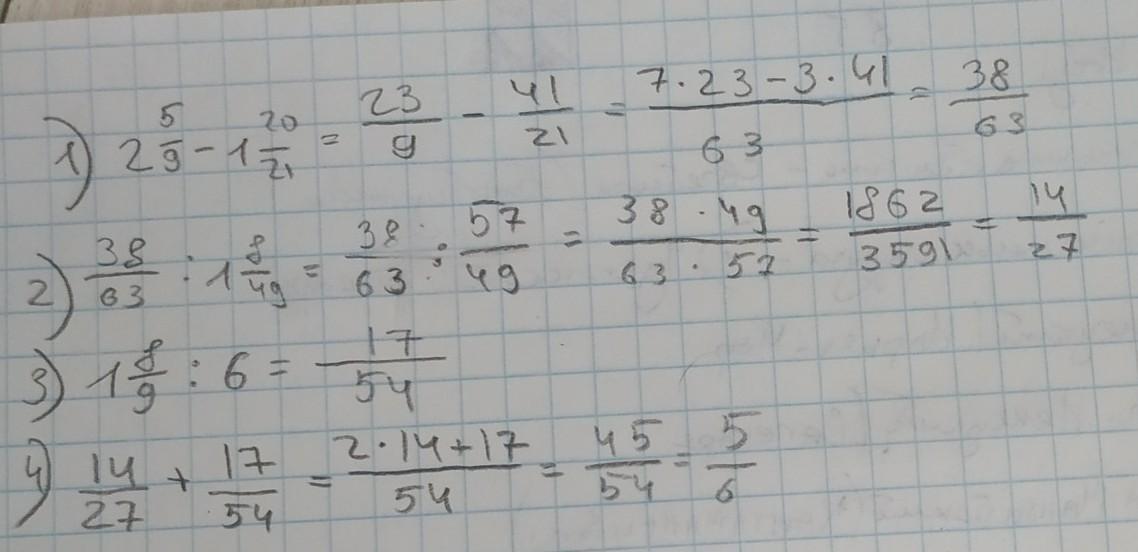 1) 2 5/9 - 1 20/21 = 23/9 - 41/21 = (7·23-3·41)/63 = 38/63
2) 38/63 : 1 8/49 = 38/63 : 57/49 = (38·49)/(63·57) = 1862/3591 = 14/27
3) 1 8/9 : 6 = 17/54
4) 14/27 + 17/54 = (2·14+17)/54 = 45/54 = 5/6